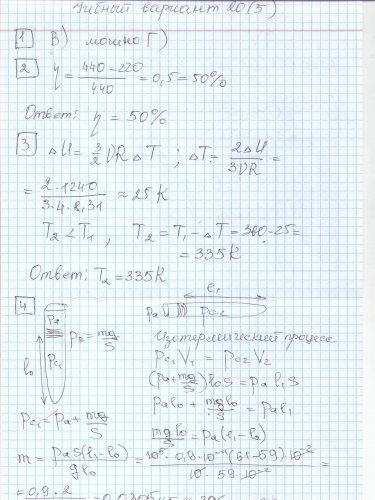 Учебный вариант 20(5)
1 В) можно Г)
2 η = (440-220)/440 = 0,5 = 50%
Ответ: η = 50%
3 ΔU = 3/2 νRΔT ; ΔT = 2ΔU/3νR =
= 2·1240/3·4·8,31 ≈ 25 К
T₂ < T₁ , T₂ = T₁ - ΔT = 360-25 =
= 335К
Ответ: T₂ = 335К
4
l₁
pa pc₂
pa
l₀ pc₁
p₂ = mg/S
Изотермический процесс
pc₁V₁ = pc₂V₂
(pa + mg/S) l₀S = pa l₁S
pa l₀ + mg/S l₀ = pa l₁
pc₁ = pa + mg/S
mgl₀/S = pa(l₁-l₀)
m = paS(l₁-l₀)/gl₀ = 10⁵·0,9·10⁻⁴(61-59)·10⁻²/10·59·10⁻² =
= 0,9·2